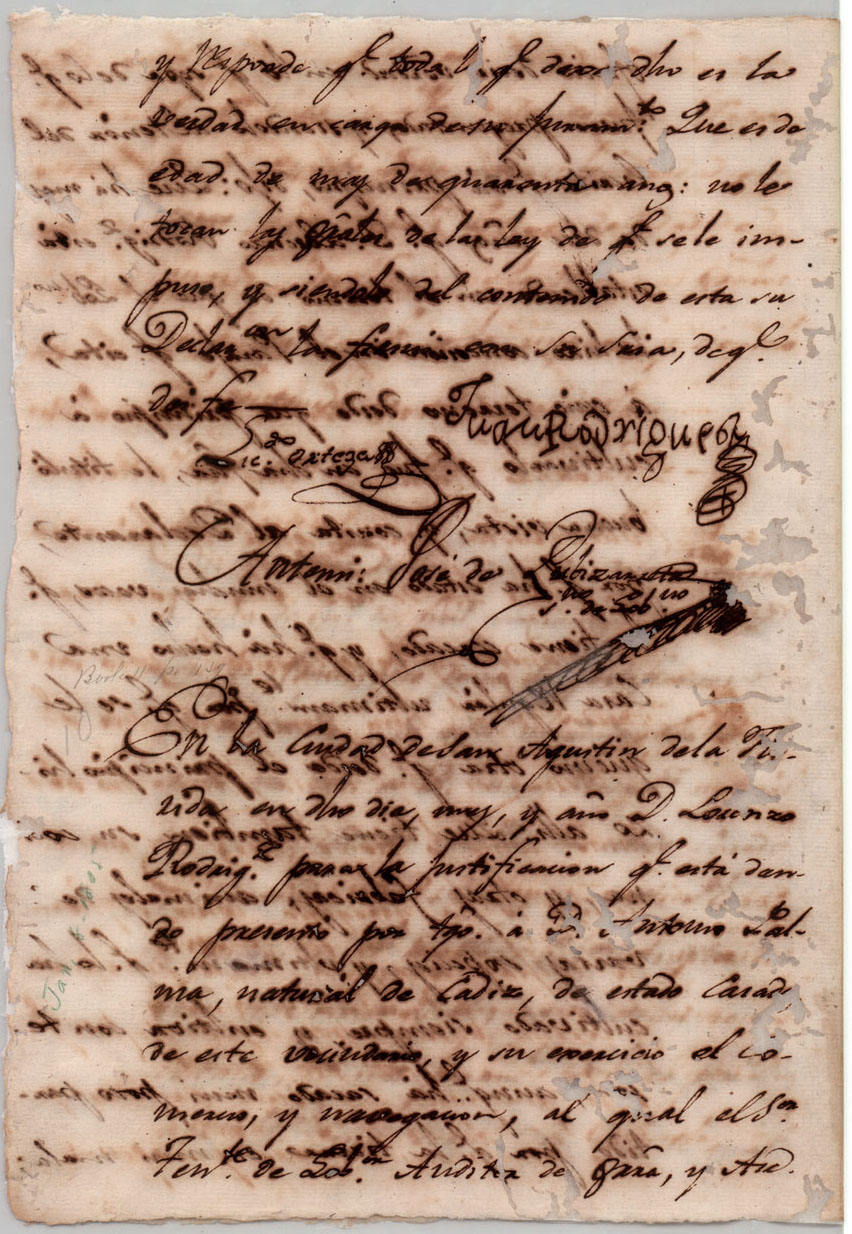 y responde qᵉ todo lo qᵉ dexa dho es la
verdad en cargo de su juramᵗᵒ Que es de
edad de mas de quarenta años: no le
tocan las grales de la ley de qᵉ se le im-
puso, y siendole del contenido de esta su
Declarᵒⁿ la firmó con su Sria, de qᵉ
doy fe
Licᵈᵒ Ortega
Juan Rodriguez
Antemi: José de Zubizarreta
S.ⁿᵒ de Gobⁿᵒ
En la Ciudad de San Agustin de la Flo-
rida en dho dia, mes, y año D. Lorenzo
Rodrig.ᶻ para la justificacion qᵉ está dan-
do presentó por tgo. á D. Antonio Pal-
ma, natural de Cádiz, de estado Casado
de este vecindario, y su exercicio el co-
mercio, y navegacion, al qual el Sᵒʳ
Tenᵗᵉ de Gobᵒʳ Auditor de grra, y Ased.
Jan 7 - 1805